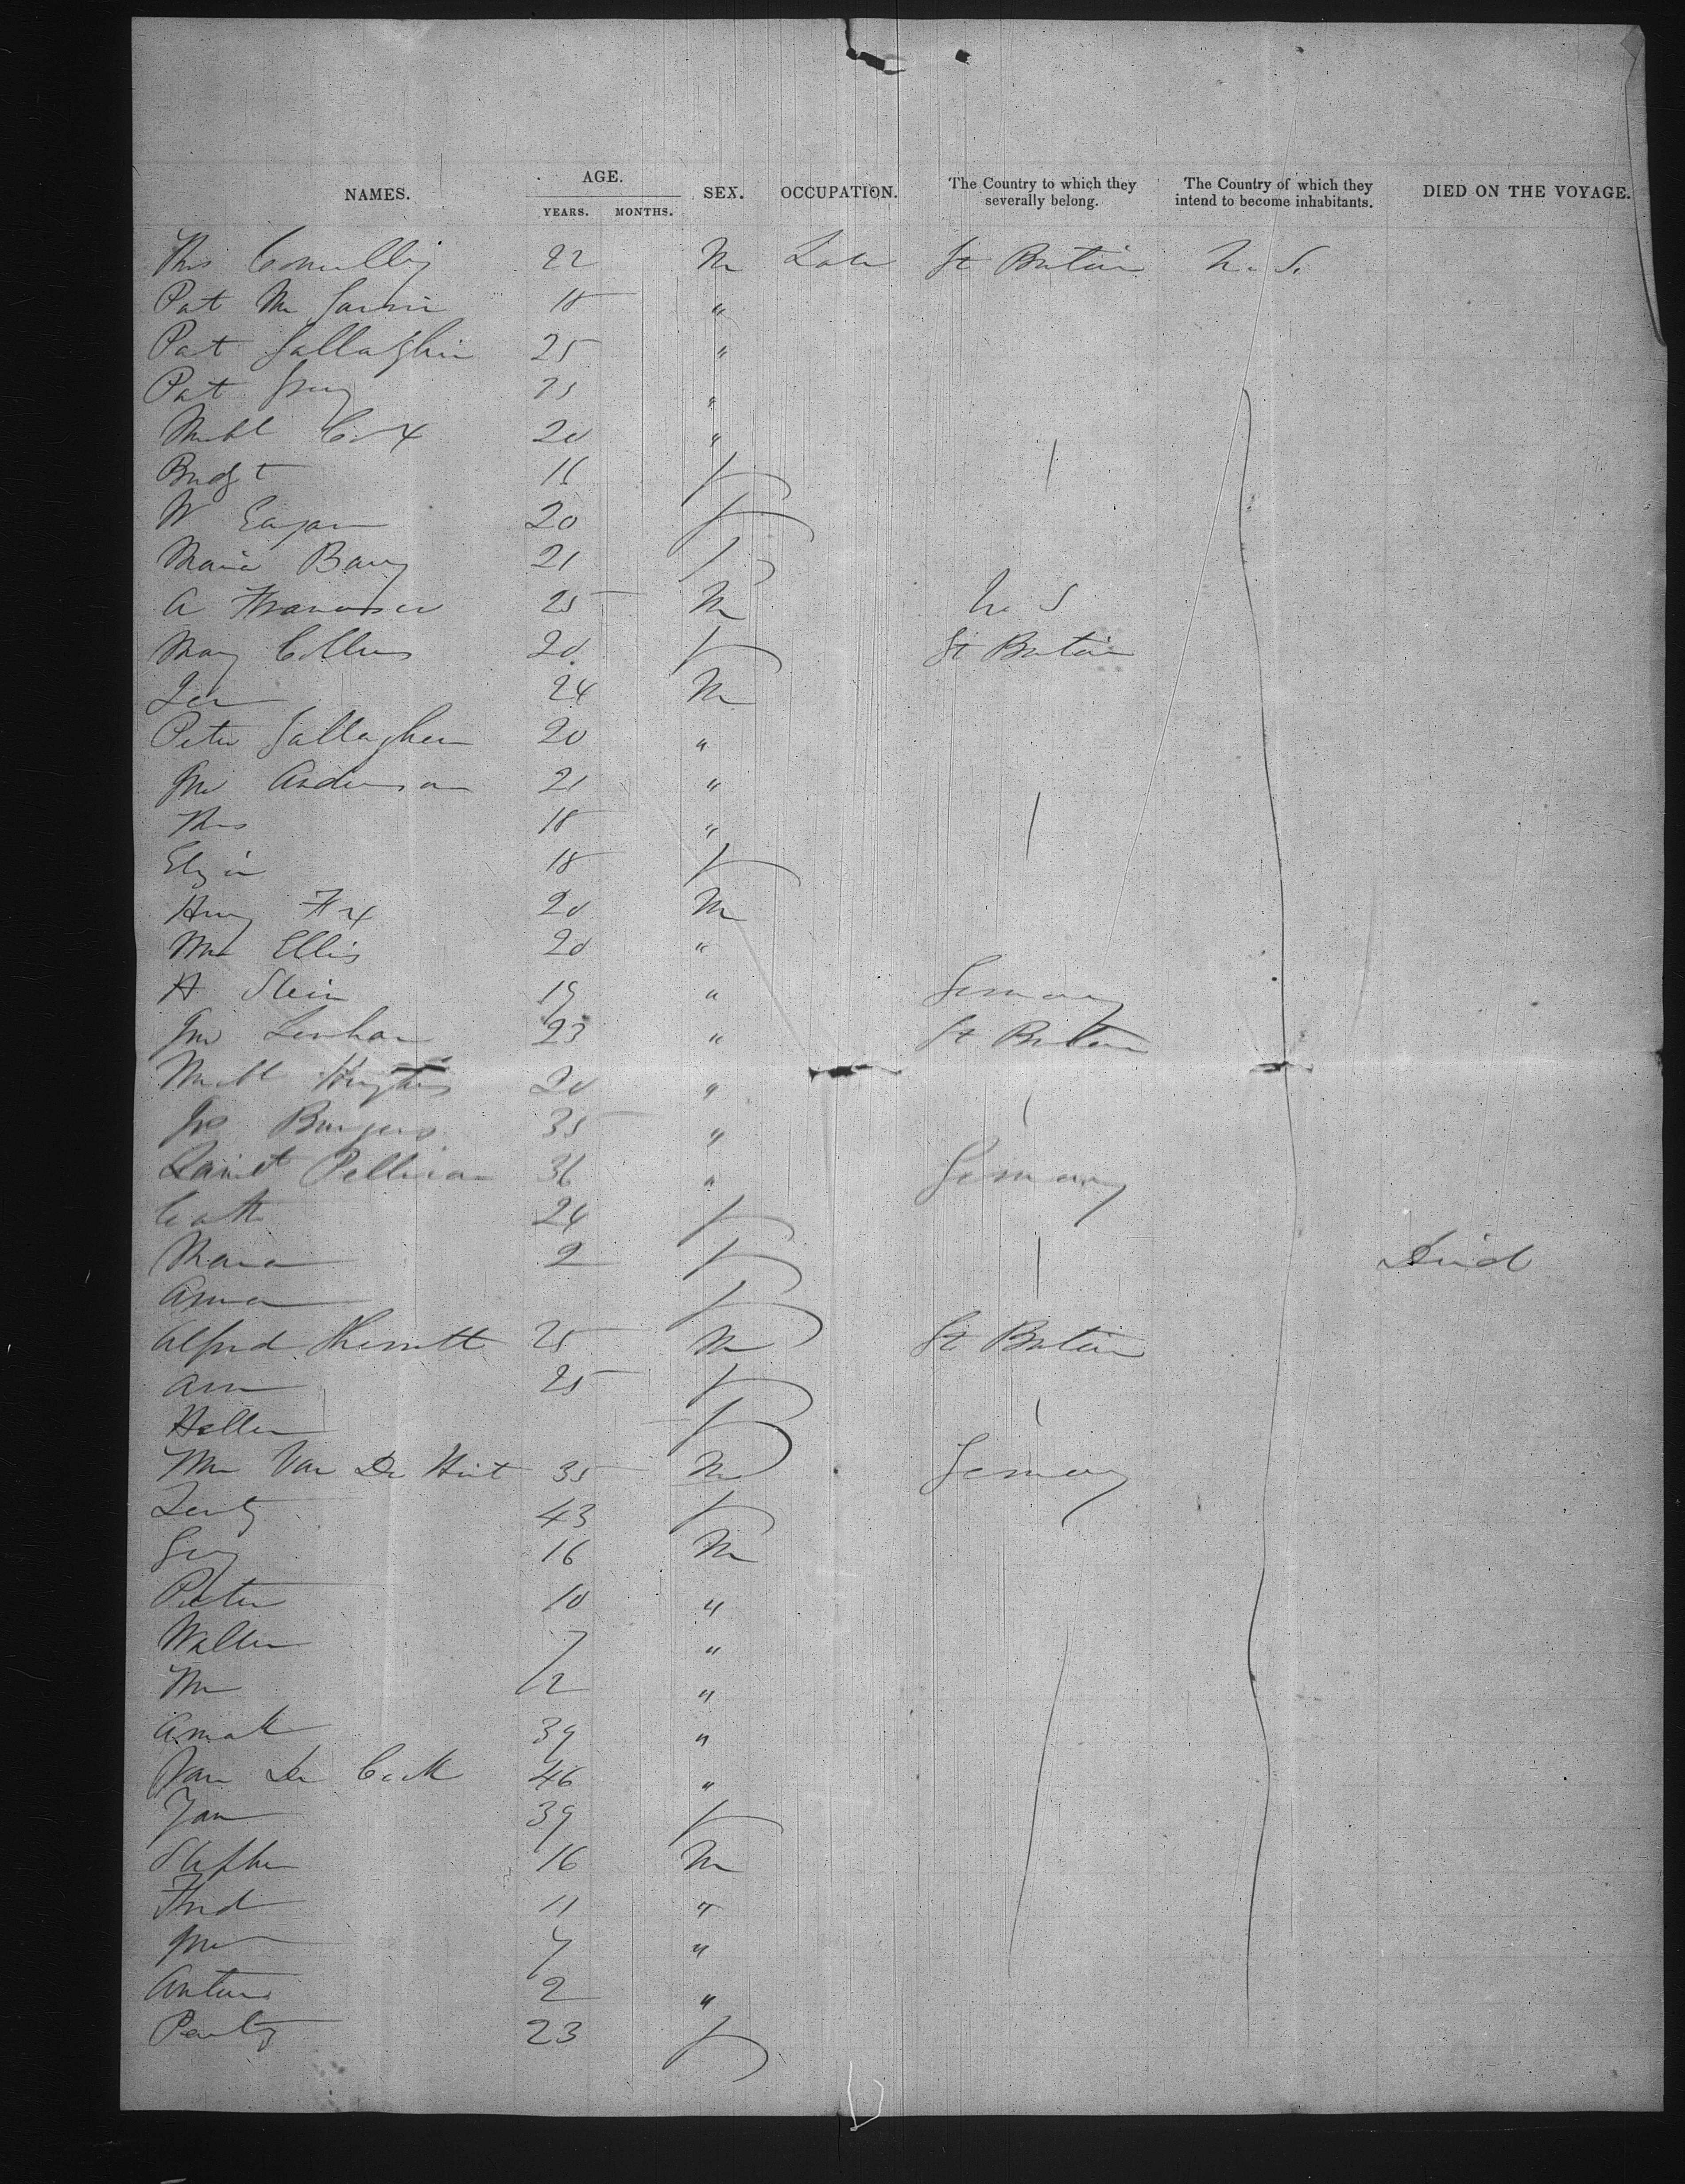 NAMES. AGE. YEARS. MONTHS. SEX. OCCUPATION. The Country to which they severally belong. The Country of which they intend to become inhabitants. DIED ON THE VOYAGE.
Thos Connelly 22 M Lab Gt Britain U. S.
Pat Mc 18 "
Pat Gallagher 25 "
Pat 25 "
Michl Cox 20 "
Bridgt 16 F
W Eagan 20 F
Maria Barry 21 F
A Francisco 25 M U S
Mary Collins 20 F Gt Britain
24 M
Peter Gallagher 20 "
Jno Anderson 21 "
Thos 18 "
Eliza 18 F
Henry Fox 20 M
Wm Ellis 20 "
H Stein 19 " Germany
Jno Lenhan 23 " Gt Britain
Michl Hughes 20 "
Jos Burgess 35 "
36 " Germany
Cath 24 F
Maria 2 F Died
Anna F
Alfred 25 M Gt Britain
Ann 25 F
Hellen F
Wm Van De 35 M Germany
43 F
Geo 16 M
Pieter 10 "
Walter 7 "
Wm 1/2 "
39 "
Van De 46 "
Jan 39 F
Stephen 16 M
Fred 11 "
Jno "
Anton 2 "
23 F